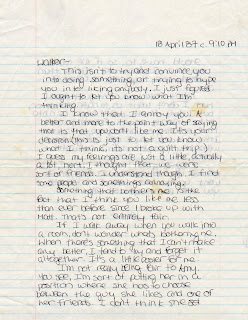 18 April 87 c. 9:10 PM
Walker-
This isn't to try and convince you
into doing something, or trying to hype
you into liking anybody. I just figured
I ought to let you know what I'm
thinking.
I know that I annoy you. A
better and more to the point way of saying
that is that you don't like me. It's your
decision (this is just to let you know
what I think, it's not a guilt trip.)
I guess my feelings are just a little, actually
a lot, hurt. I thought that we were
sort of friends. I understand though. I find
some people and something annoying.
Something that bothers me is the
fact that I think you like me less
than ever before since I broke up with
Matt. That's not entirely fair.
If I walk away when you walk into
a room, don't wonder what's bothering me.
When there's something that I can't make
any better, I tend to try and forget it
altogether. It's a little easier for me.
I'm not really being fair to Amy.
You see, I'm sort of putting her in a
position where she has to choose
between the guy she likes and one of
her friends. I don't think she